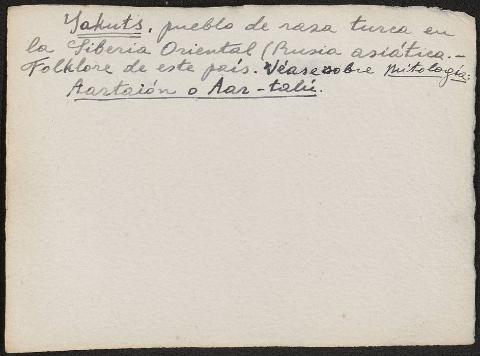 Yakuts, pueblo de raza turca en
la Siberia Oriental (Rusia asiática.-
Folklore de este país. Véase sobre Mitología:
Aartaión o Aar-talú.